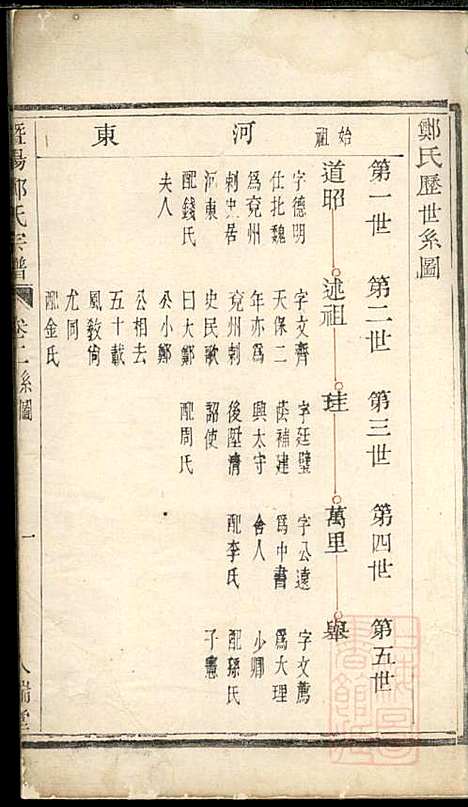 鄭氏歷世系圖
第一世
第二世
第三世
第四世
第五世
始祖
河東
道昭
字德明
仕北魏
為兗州
刺史居
河東
配錢氏
夫人
述祖
字文齊
天保二
年亦為
兗州刺
史民歌
曰大鄭
公小鄭
公相去
五十載
風敎尙
尤同
配金氏
珪
字廷璧
蔭補建
興太守
後陞濟
詔使
配周氏
萬里
字公遠
為中書
舍人
配李氏
舉
字文薦
為大理
少卿
配孫氏
子憲
暨陽鄭氏宗譜
卷二系圖
一